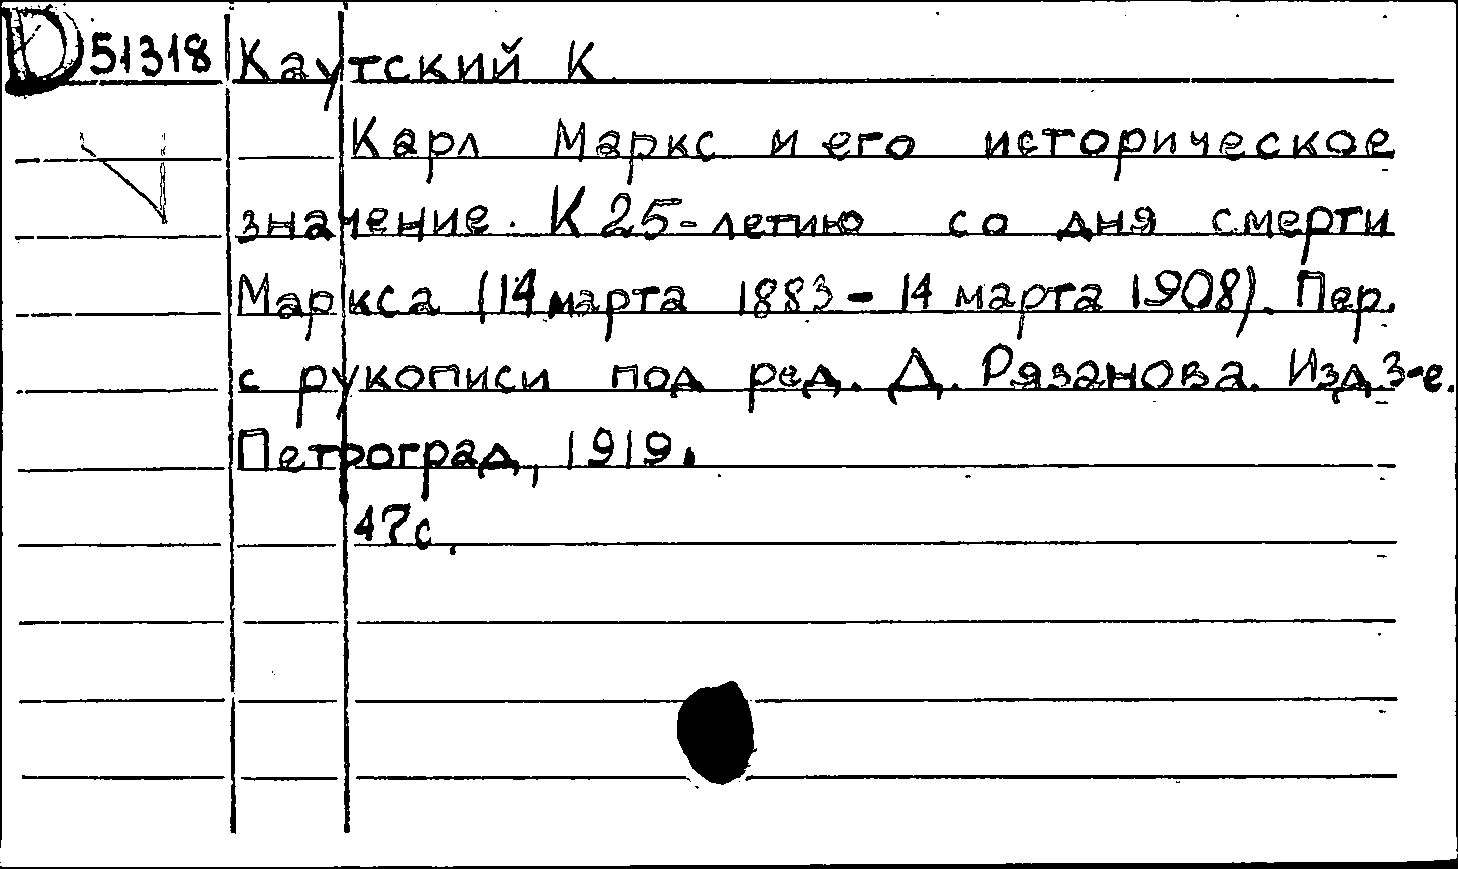 D 51318 Каутский К
Карл Маркс и его историческое
значение. К 25-летию со дня смерти
Маркса (14 марта 1883 - 14 марта 1908). Пер.
с рукописи под ред. Д. Рязанова. Изд. 3-е.
Петроград, 1919.
47с.